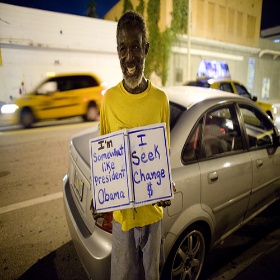 I'm
Somewhat
like
president
Obama
I
Seek
Change
$